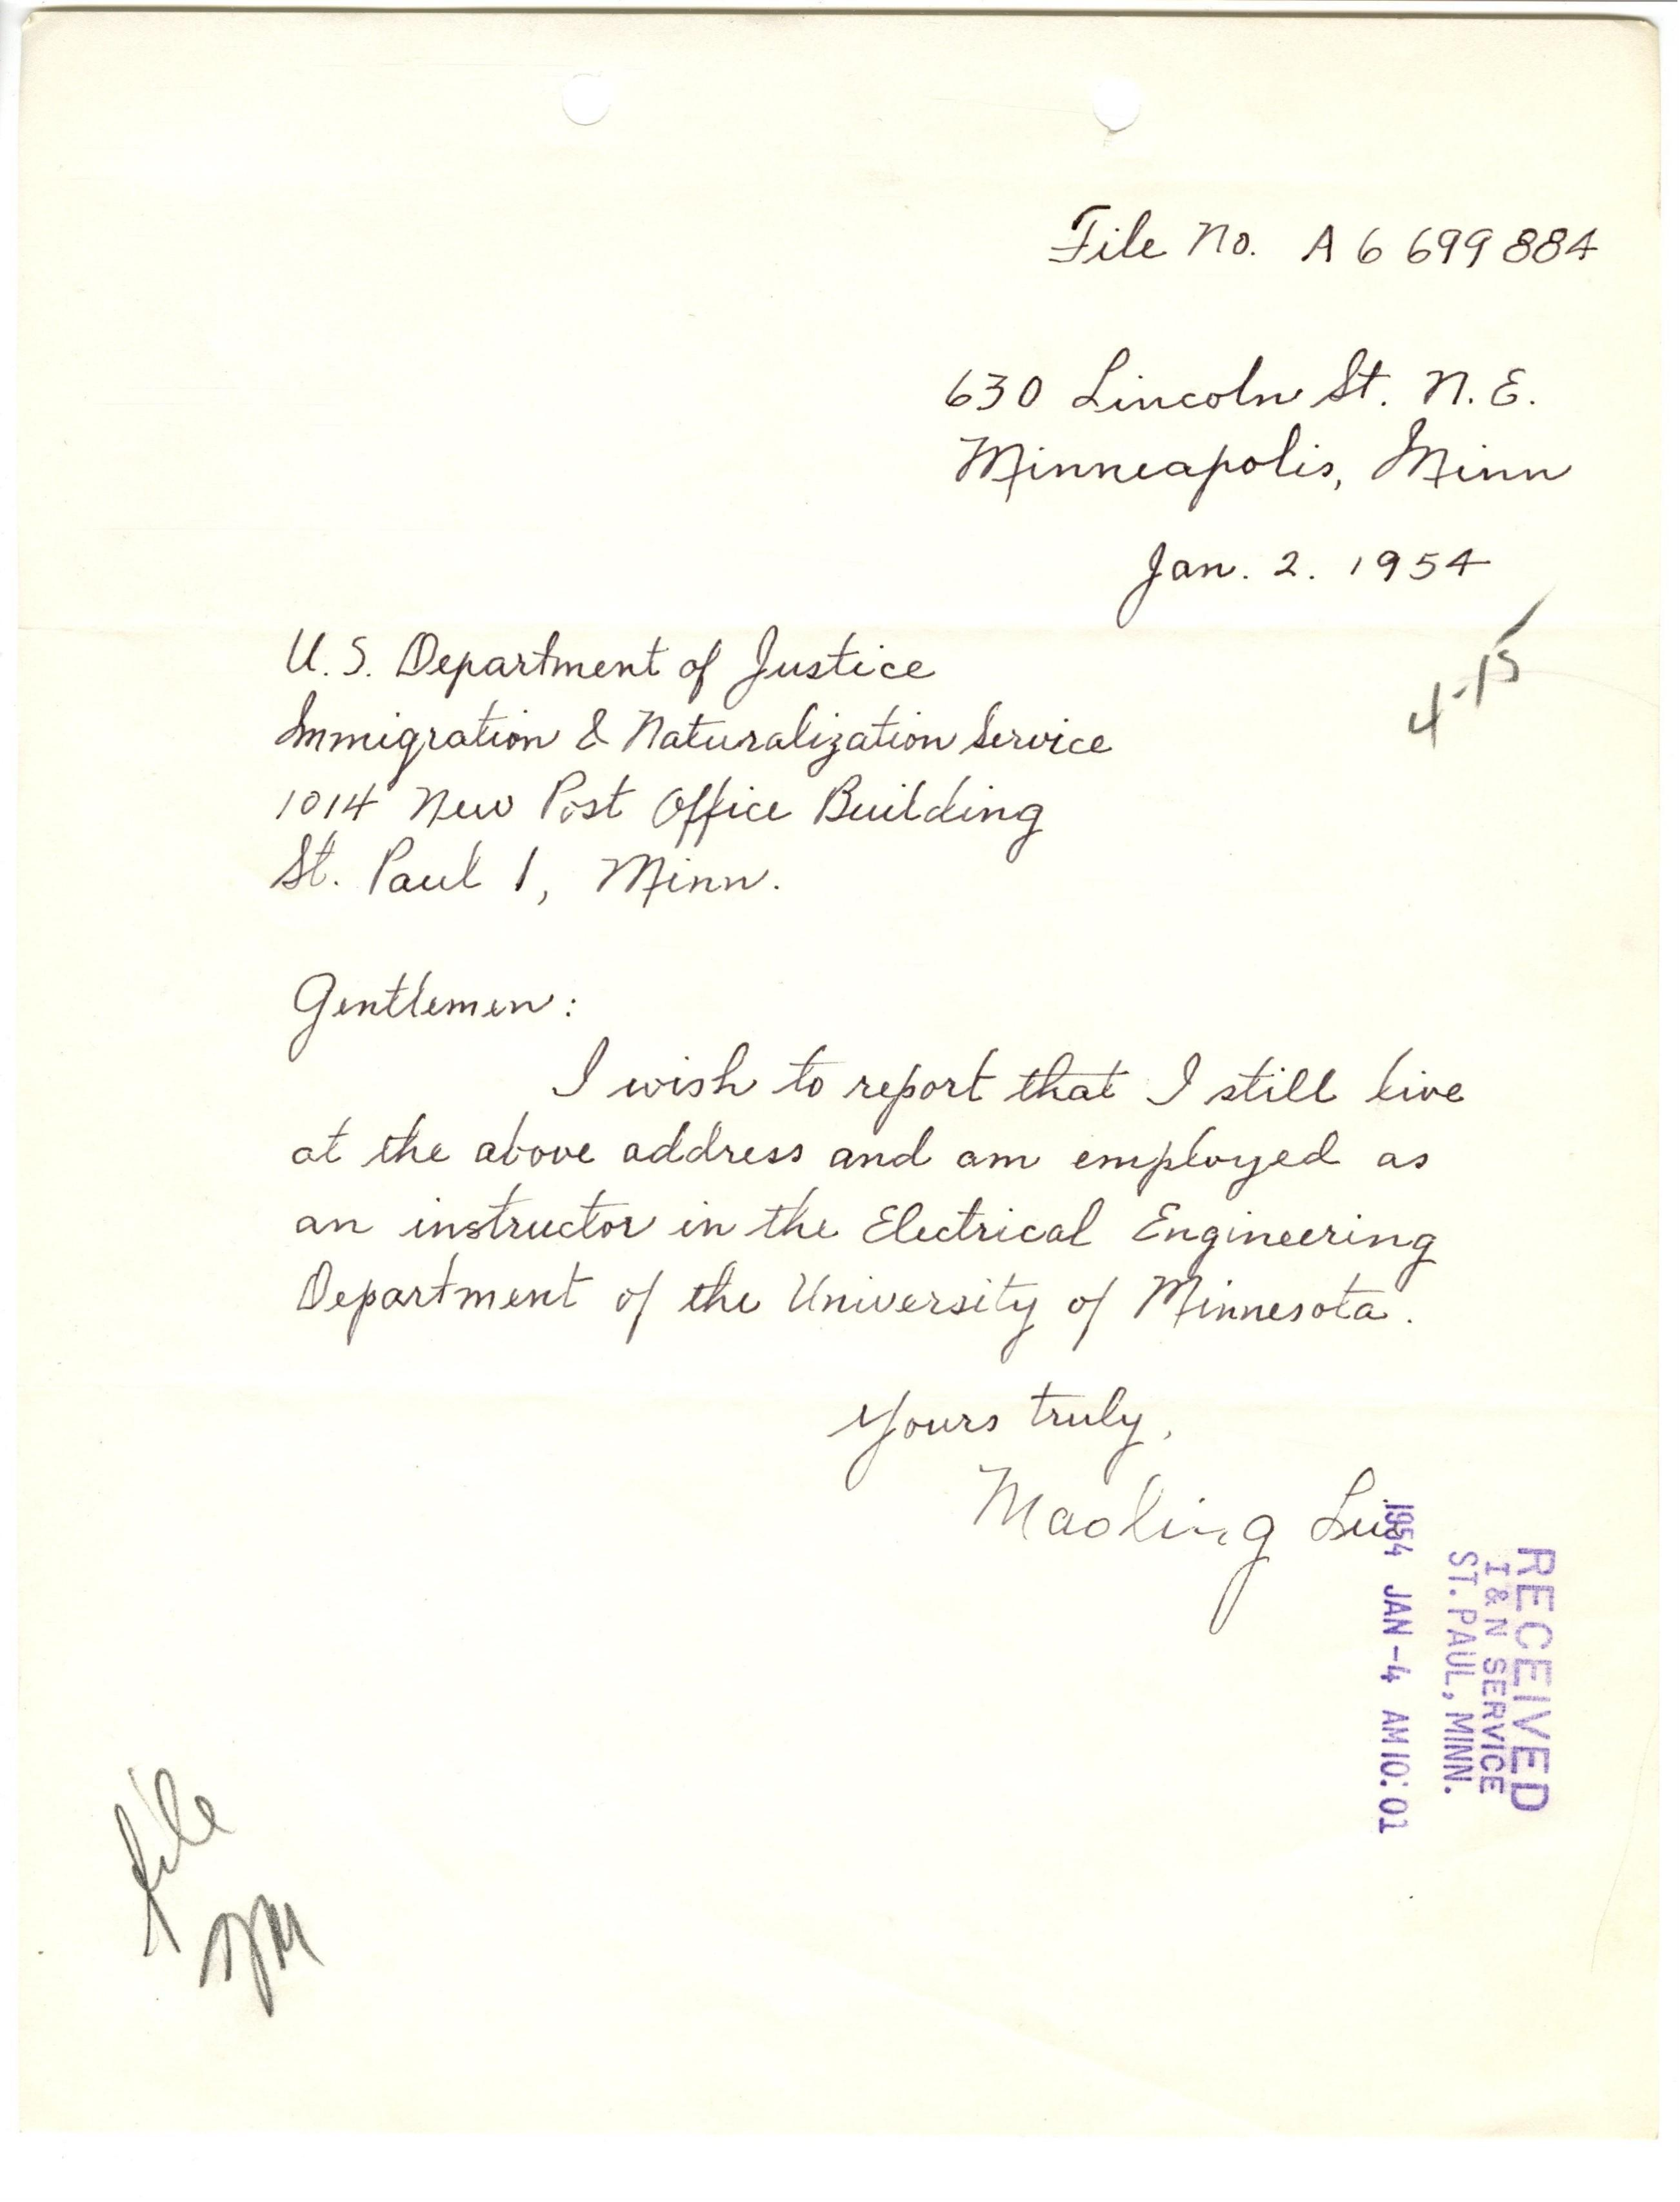 File No. A 6 699 884
630 Lincoln St. N.E.
Minneapolis, Minn
Jan. 2. 1954
4-15
U.S. Department of Justice
Immigration & Naturalization Service
1014 New Post Office Building
St. Paul 1, Minn.
Gentlemen:
I wish to report that I still live
at the above address and am employed as
an instructor in the Electrical Engineering
Department of the University of Minnesota.
Yours truly,
Maoling Liu
RECEIVED
I & N SERVICE
ST. PAUL, MINN.
1954 JAN -4 AM 10:01
file